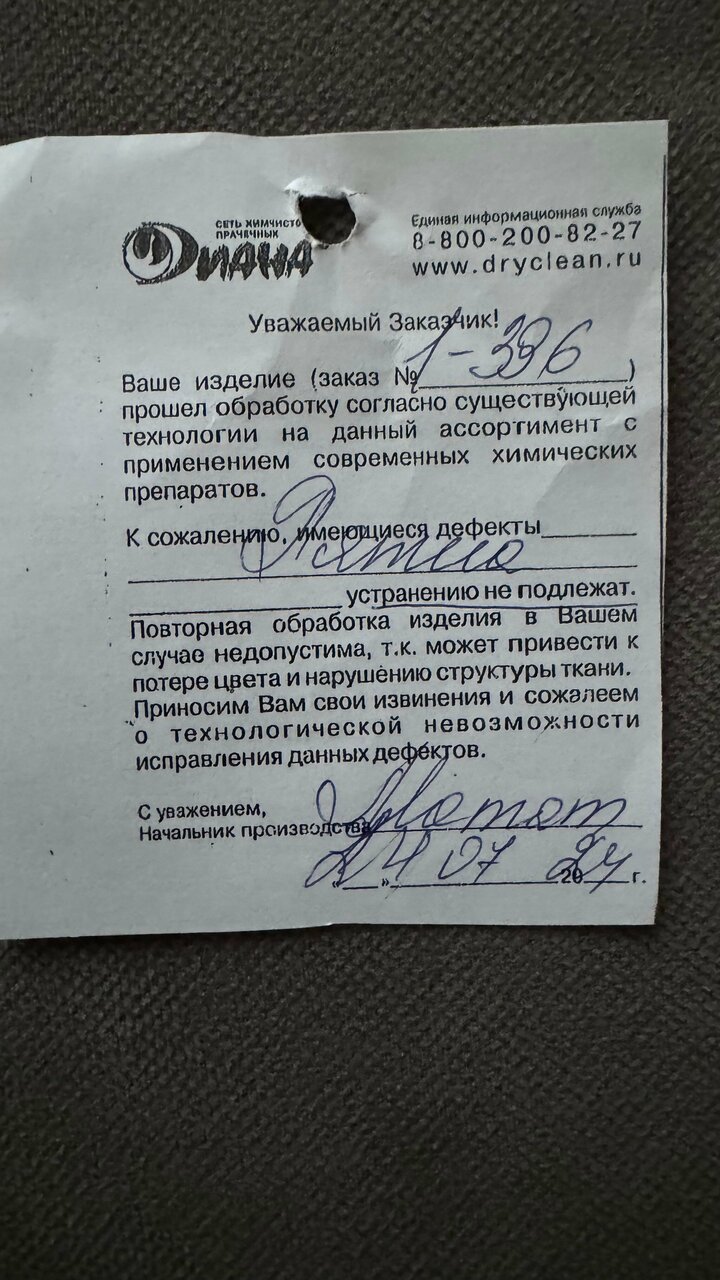 СЕТЬ ХИМЧИСТО
ПРАЧЕЧНЫХ
ДИАНА
Единая информационная служба
8-800-200-82-27
www.dryclean.ru
Уважаемый Заказчик!
Ваше изделие (заказ № 1-396)
прошел обработку согласно существующей
технологии на данный ассортимент с
применением современных химических
препаратов.
К сожалению, имеющиеся дефекты
Пятна
устранению не подлежат.
Повторная обработка изделия в Вашем
случае недопустима, т.к. может привести к
потере цвета и нарушению структуры ткани.
Приносим Вам свои извинения и сожалеем
о технологической невозможности
исправления данных дефектов.
С уважением,
Начальник производства
"24" 07 2024 г.